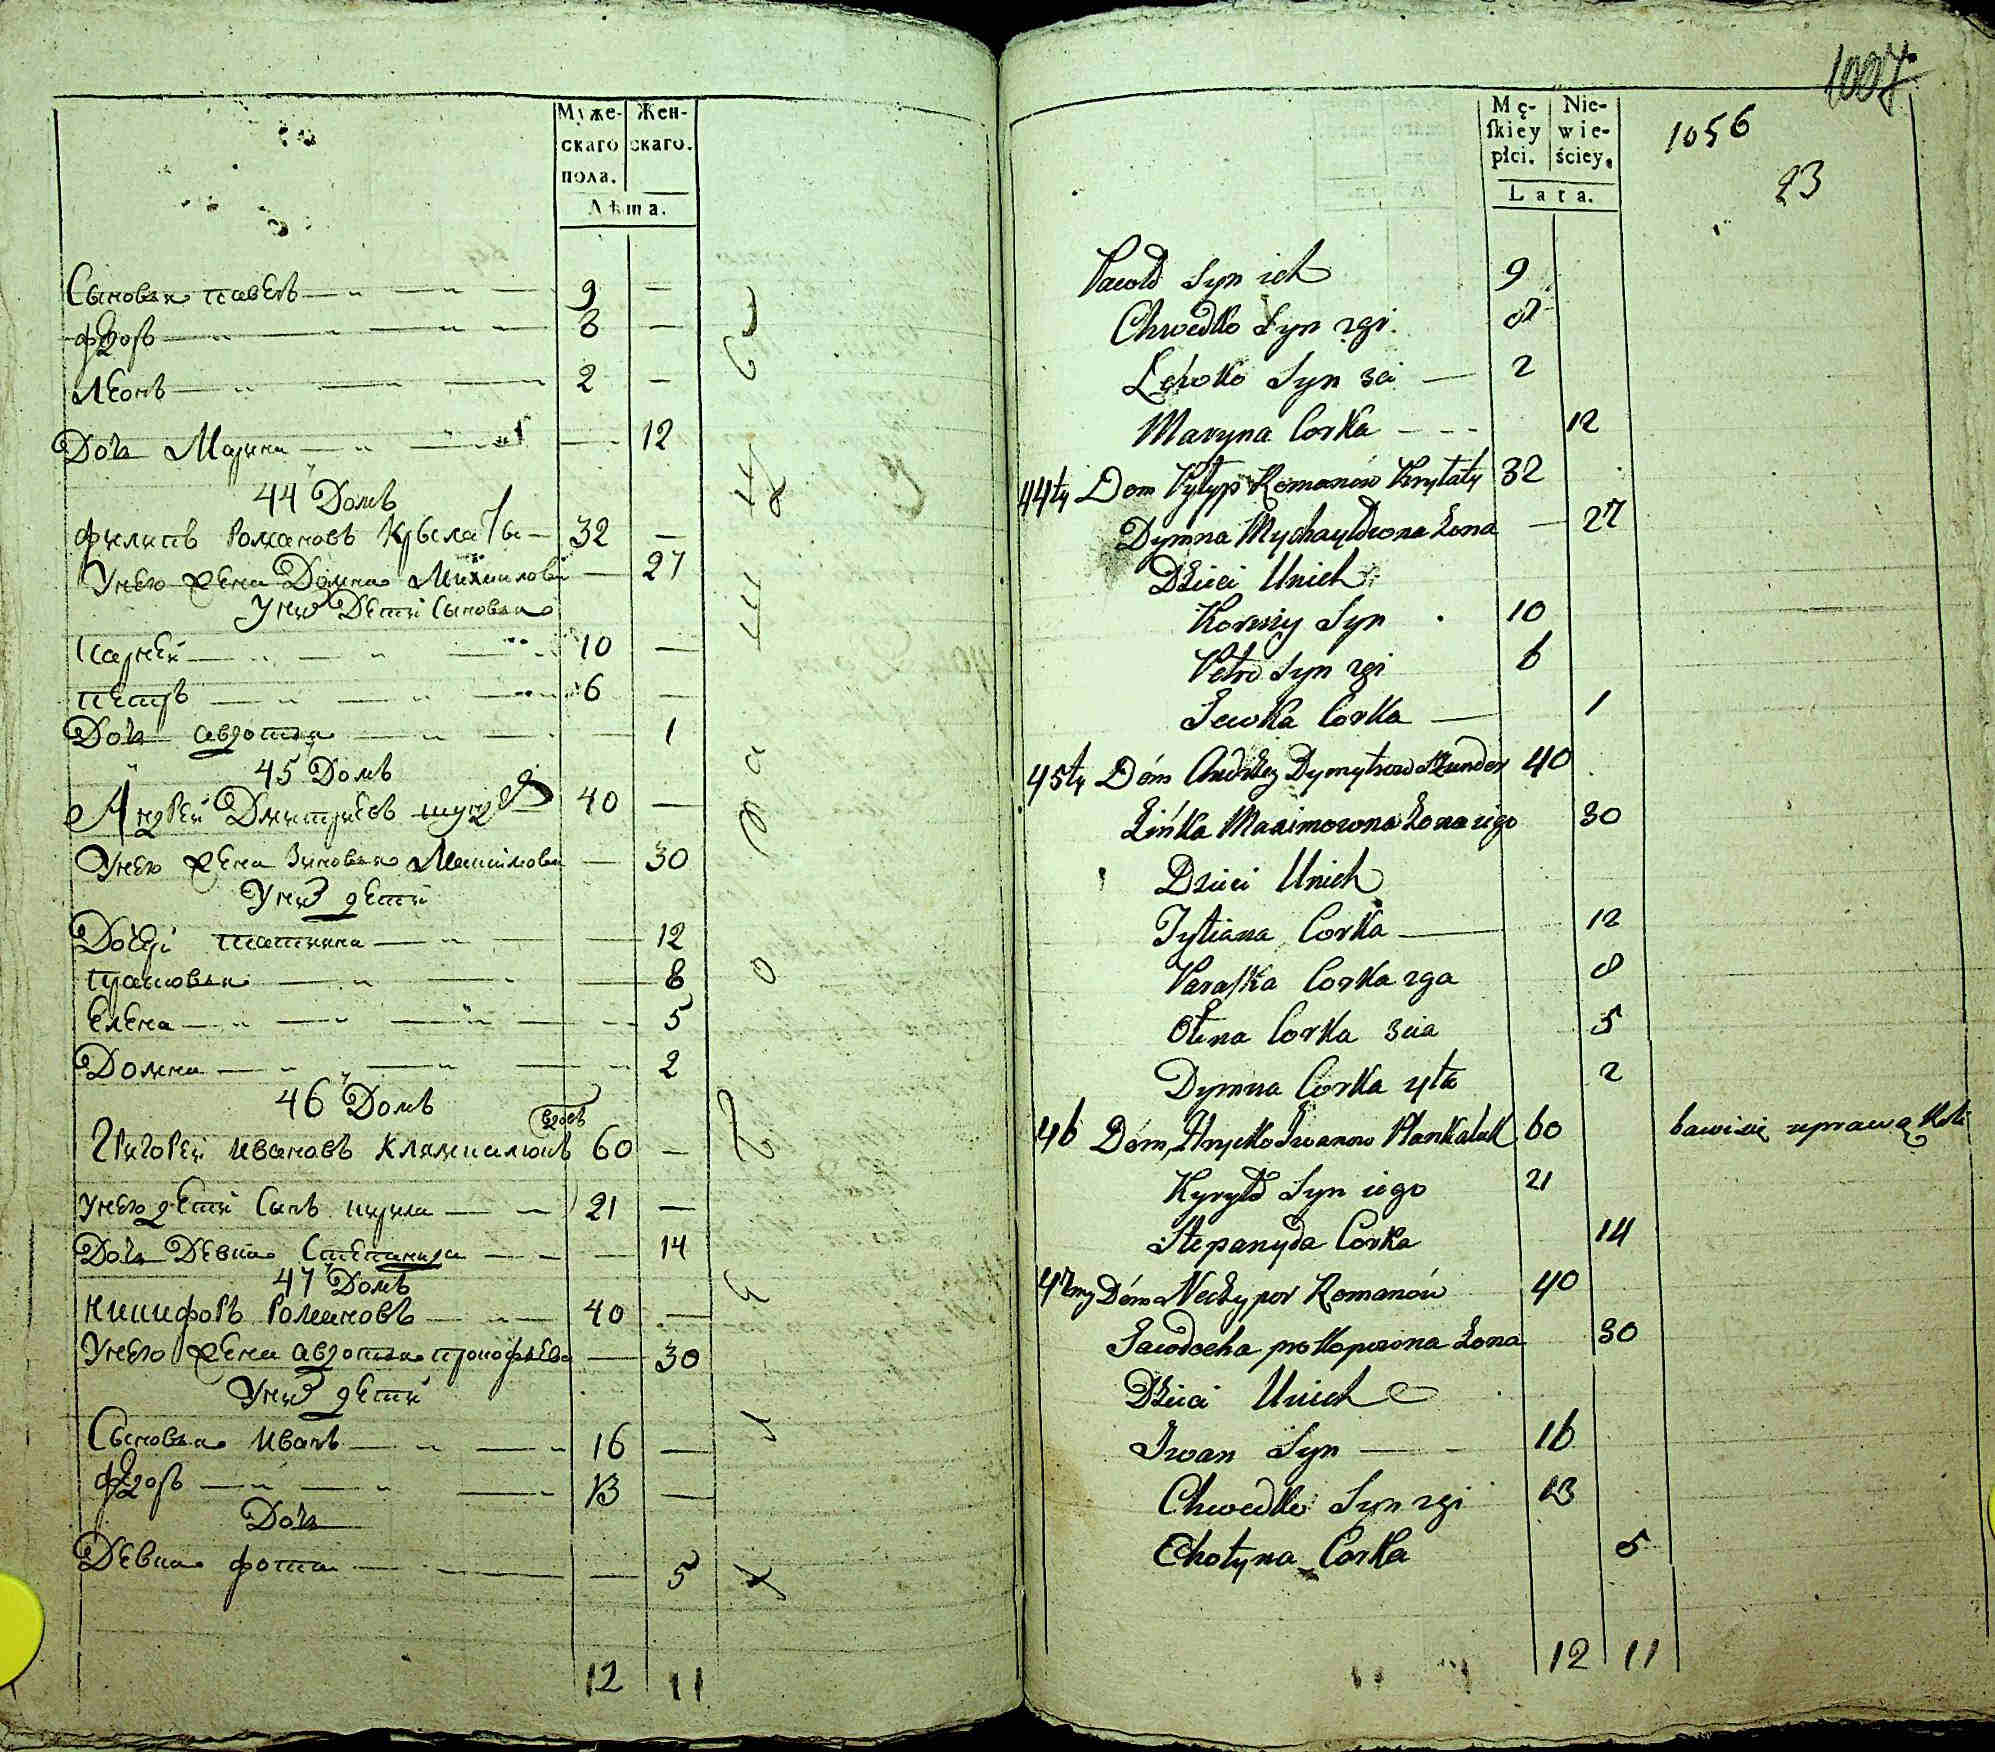 Муже-
скаго
пола.
Жен-
скаго.
Лѣта.
Сыновья павелъ 9 —
Фдоръ 8 —
Леонъ 2 —
Дочь Марина — 12
44 Домъ
Филипъ Романовъ Крыслаты 32 —
Унего жена Домна Михаилова — 27
Уних Дети Сыновья
Карней 10 —
петръ 6 —
Дочь авдотья — 1
45 Домъ
Андрей Дмитриевъ 40 —
Унего жена Зиновья Максимова — 30
Уних дети
Дочери татияна — 12
прасковья — 8
Елена — 5
Домна — 2
46 Домъ
вдовъ
Григорей Ивановъ 60 —
Унего дети Сынъ кирила 21 —
Дочь Девка Степанида — 14
47 Домъ
Никифоръ Романовъ 40 —
Унего жена авдотья прокофьева — 30
Уних дети
Сыновья Иванъ 16 —
Фдоръ 13 —
Дочь
Девка фотина — 5
12 11
1007
Mę-
ſkiey
płci.
Nie-
wie-
ściey.
Lata.
1056
23
Pawło Syn ich 9
Chwedko Syn 2gi 8
Lewko Syn 3ci 2
Maryna Corka 12
44ty Dom Pyłyp Romanów Kryłaty 32
Dymna Mychayłowna Żona 27
Dzieci Unich
Korniy Syn 10
Petro Syn 2gi 6
Jawka Corka 1
45ty Dóm Andrey Dymytrow Szunder 40
Zińka Maximowna Żona iego 30
Dzieci Unich
Tytiana Corka 12
Paraſka Corka 2ga 8
Ołena Corka 3cia 5
Dymna Corka 4ta 2
46 Dóm, Hrycko Iwanow 60 bawi się uprawą Roli
Kyryło Syn iego 21
Stepanyda Corka 14
47my Dóm Neczypor Romanów 40
Jawdocha prokopowna Żona 30
Dzieci Unich
Iwan Syn 16
Chwedko Syn 2gi 13
Chotyna Corka 5
12 11